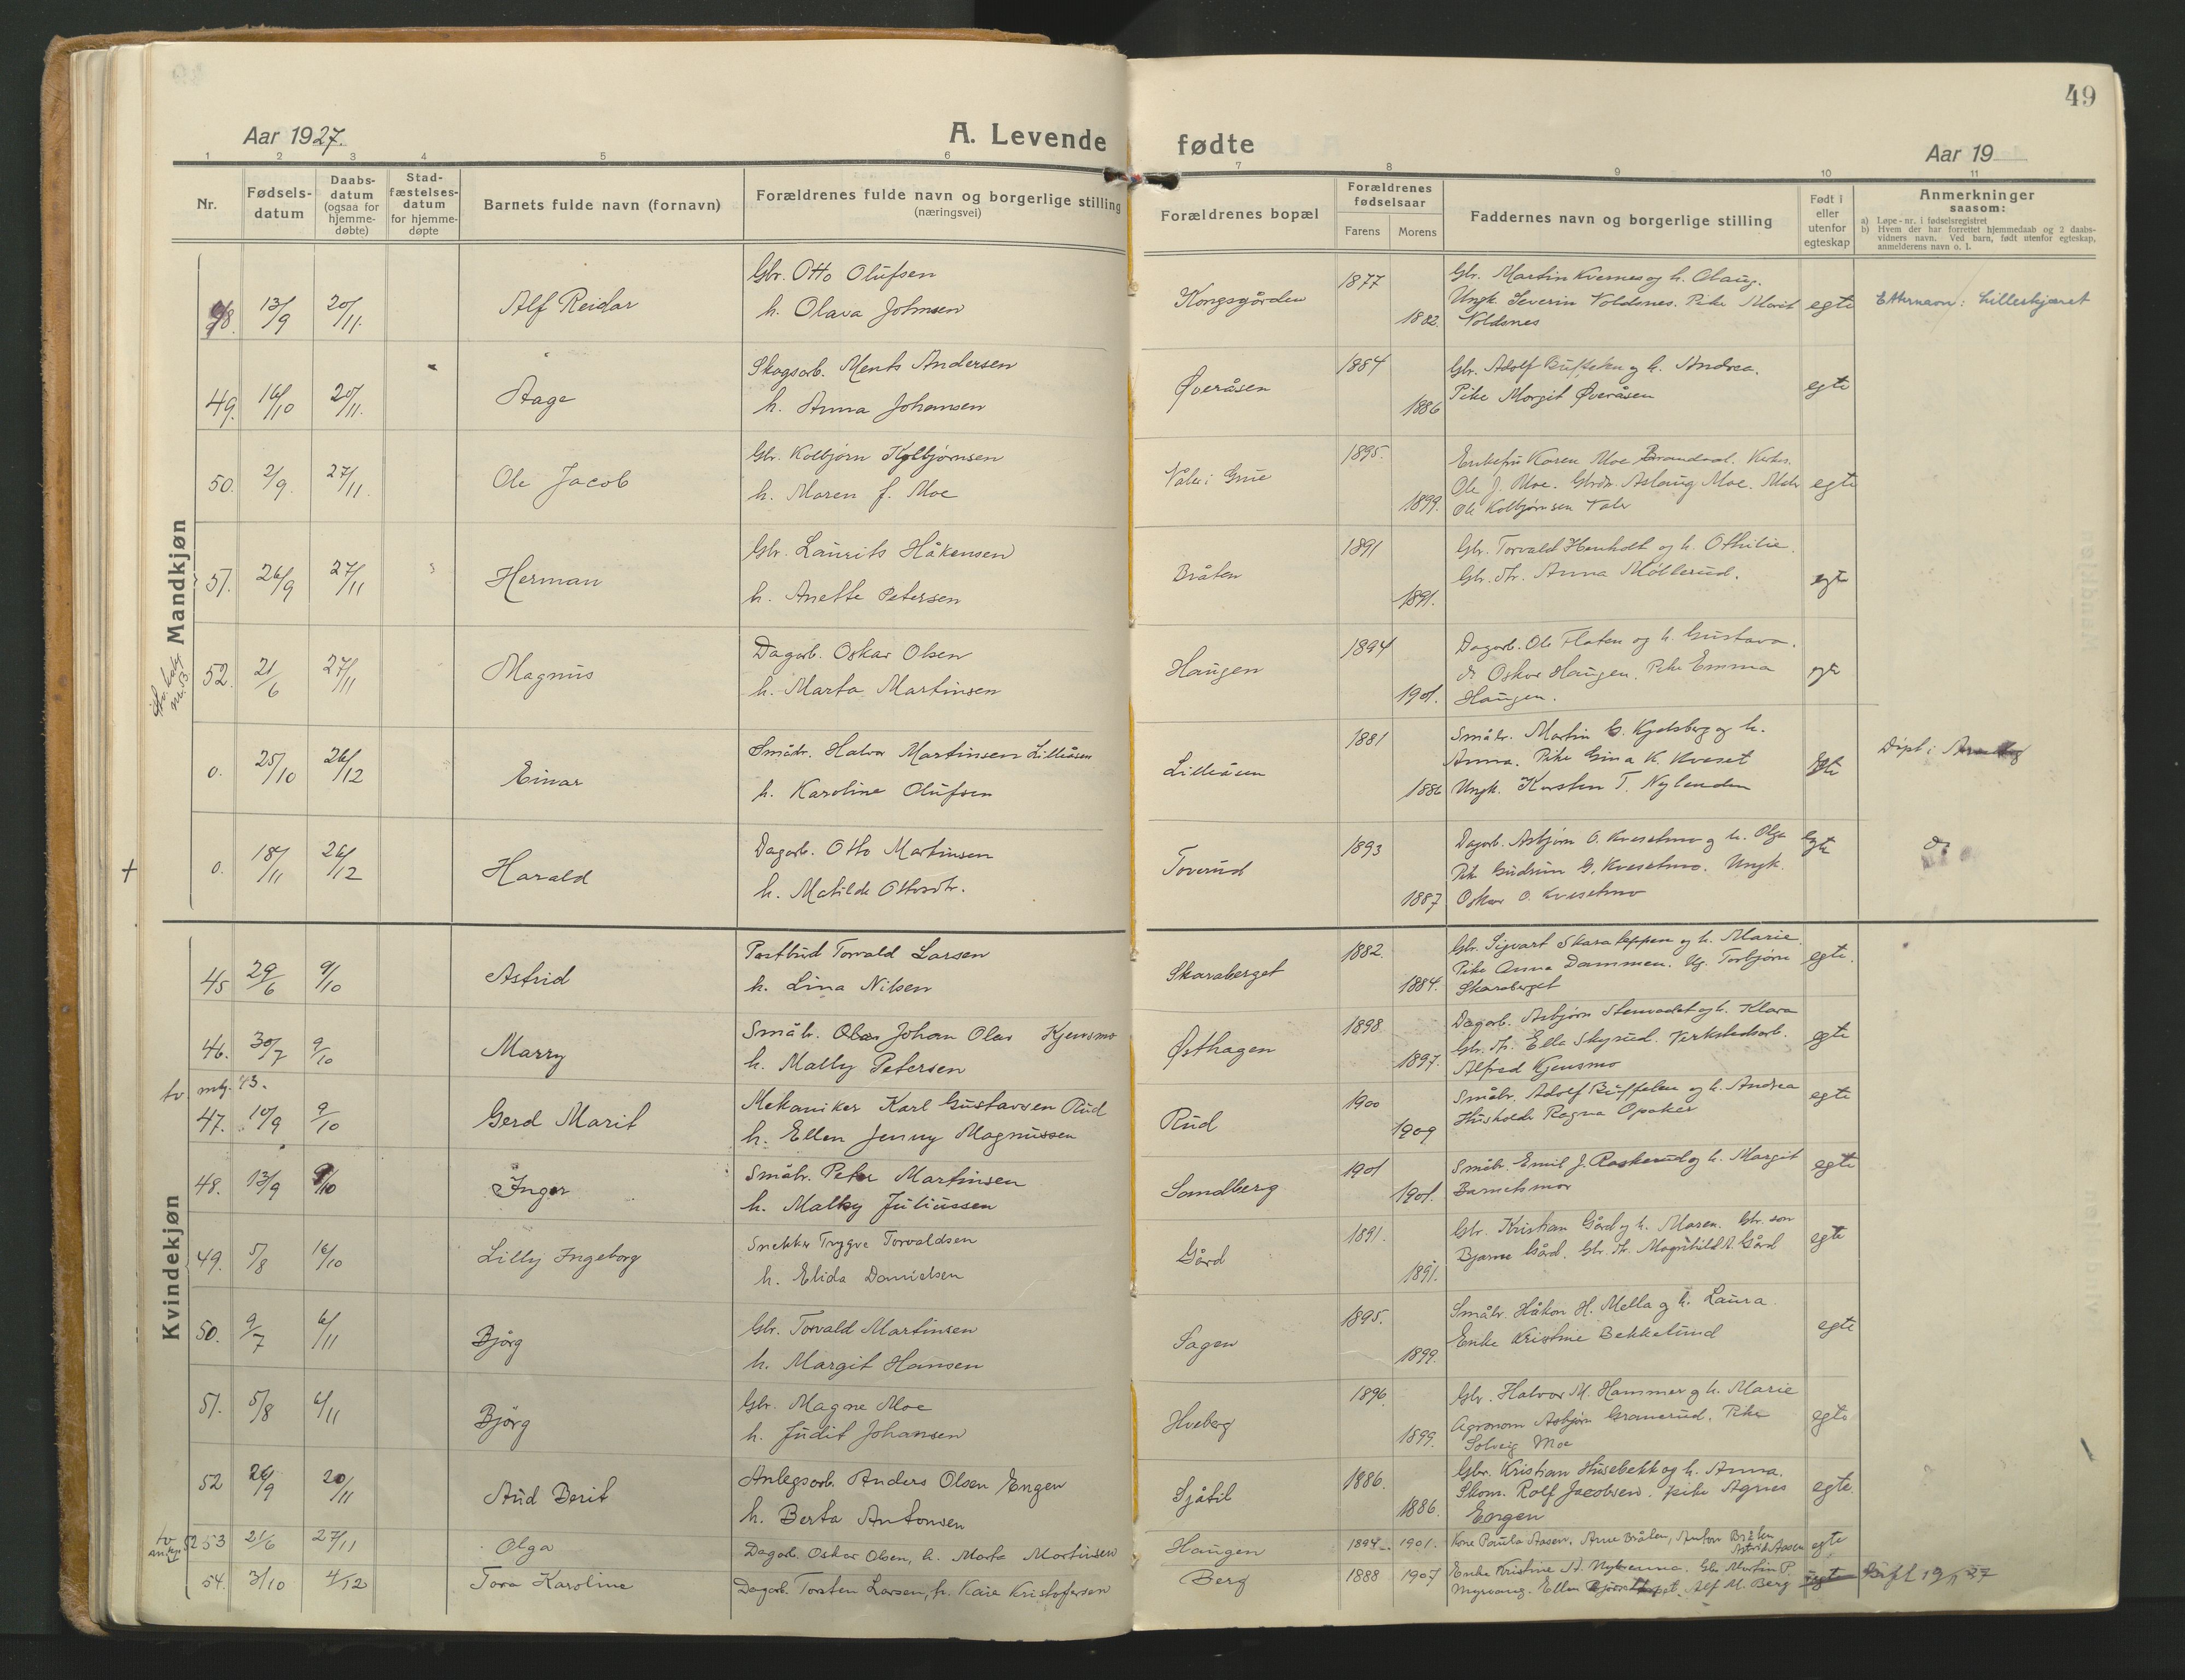 49
Aar 1927.
A. Levende fødte
Aar 19
1 2 3 4 5 6 7 8 9 10 11
Nr.
Fødsels-
datum
Daabs-
datum
(ogsaa for
hjemme-
døbte)
Stad-
fæstelses-
datum
for hjemme-
døpte
Barnets fulde navn (fornavn)
Forældrenes fulde navn og borgerlige stilling
(næringsvei)
Forældrenes bopæl
Forældrenes
fødselsaar
Farens Morens
Faddernes navn og borgerlige stilling
Født i
eller
utenfor
egteskap
Anmerkninger
saasom:
a) Løpe-nr. i fødselsregistret
b) Hvem der har forrettet hjemmedaab og 2 daabs-
vidners navn. Ved barn, født utenfor egteskap,
anmelderens navn o. l.
Mandkjøn
48. 13/9 20/11. Alf Reidar
Gbr. Otto Olufsen
h. Olava Johnsen
Kongsgården 1877 1882.
Gbr. Martin Kvernes og h. Olaug.
Ungk. Severin Voldsnes. Pike Marit
Voldsnes
egte
Etternavn: Lilleskjæret
49. 16/10 20/11. Aage
Skogsarb. Ments Andersen
h. Anna Johansen
Øveråsen 1884 1886
Gbr. Adolf Buffelen og h. Andrea.
Pike Margit Øveråsen
egte
50. 2/9 27/11. Ole Jacob
Gbr. Kolbjørn Kolbjørnsen
h. Maren J. Moe
Våler i Grue 1895. 1899.
Enkefru Karen Moe Brandval.
Ole J. Moe. Gbrdtr. Aslaug Moe.
Ole Kolbjørnsen Våler
egte
51. 26/9 27/11 Herman
Gbr. Laurits Håkensen
h. Anette Petersen
Bråten 1891 1891.
Gbr. Torvald Henholt og h. Othilie.
Gbr. dtr. Anna Møllerud.
egte
52. 21/6 27/11 Magnus
Dagarb. Oskar Olsen
h. Marta Martinsen
Haugen 1894 1901.
Dagarb. Ole Flaten og h. Gustava.
do Oskar Haugen. Pike Emma
Haugen.
egte
0. 25/10 26/12 Einar
Småbr. Halvor Martinsen Lilleåsen
h. Karoline Olufsen
Lilleåsen 1881 1886
Småbr. Martin G. Kjelsberg og h.
Anna. Pike Gina K. Kveset
Ungk. Karsten T. Nylenden
egte
Døpt i
+ 0. 18/11 26/12 Harald
Dagarb. Otto Martinsen
h. Matilde Ottosdtr.
Toverud 1893 1887
Dagarb. Asbjørn O. Kvesetmo og h. Olga
Pik. Gudrun G. Kvesetmo. Ungk.
Oskar O. Kvesetmo
egte
do
Kvindekjøn
45 29/6 9/10 Astrid
Postbud Torvald Larsen
h. Lina Nilsen
Skaraberget 1882. 1884.
Gbr. Sigvart Skaraleppen og h. Marie.
Pike Anna Dammen. Ug. Torbjørn
Skaraberget
egte.
46. 30/7 9/10 Marry
Småbr. Johan Olav Kjensmo
h. Mally Petersen
Østhagen 1898 1897.
Dagarb. Asbjørn Stenvadet og h. Klara
Gbr. dtr. Ella Skyrud. Verkstedsarb.
Alfred Kjensmo
egte
47. 10/9 9/10 Gerd Marit
Mekaniker Karl Gustavsen Rud
h. Ellen Jenny Magnussen
Rud 1900 1909
Småbr. Adolf Buffelen og h. Andrea
Hushold. Ragna Opaker
egte
48. 13/9 9/10 Inger
Småbr. Peter Martinsen
h. Malby Juliussen
Sandberg 1901 1901.
Småbr. Emil J. Raskerud og h. Margit
Barnets mor
egte
49. 5/8 16/10 Lilly Ingeborg
Snekker Trygve Torvaldsen
h. Elida Danielsen
Gård 1891. 1891.
Gbr. Kristian Gård og h. Maren. Gbr. søn
Bjarne Gård. Gbr. dtr. Magnhild R. Gård
egte
50. 9/7 6/11 Bjørg
Gbr. Torvald Martinsen
h. Margit Hansen
Sagen 1895. 1899.
Småbr. Håkon H. Mella og h. Laura.
Enke Kristine Bekkelund
egte
51. 5/8 6/11 Bjørg
Gbr. Magne Moe
h. Judit Johansen
Hveberg 1896. 1899.
Gbr. Halvor M. Hammer og h. Marie
Agronom Asbjørn Granerud. Pike
Solveig Moe
egte
52 26/9 20/11 Aud Berit
Anlegsarb. Anders Olsen Engen
h. Berta Antonsen
Sjåtil 1886. 1886.
Gbr. Kristian Husebekk og h. Anna.
Skom. Rolf Jacobsen. pike Agnes
Engen
egte
53 21/6 27/11 Olga
Dagarb. Oskar Olsen, h. Marta Martinsen
Haugen 1894. 1901.
Kone Paula Aasen, Arne Bråten, Anton Bråten
Astrid Aasen
egte
54. 3/10 4/12 Tora Karoline
Dagarb. Torsten Larsen, h. Kaia Kristofersen
Berg 1888 1907
Enke Kristine A. Myrvang. Gbr. Martin P.
Myrvang. Ellen Alf M. Berg
egte